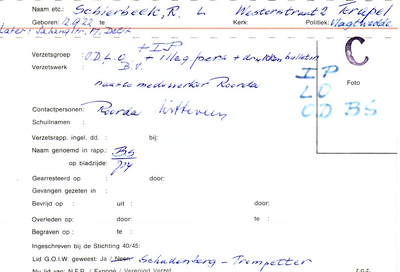 Naam etc: Schierbeek, R. L Westerstraat 2 Terapel
Geboren: 12.9.22 te Kerk: Politiek: Vlagtwedde
Later: M. Delft
+ I P
Verzetsgroep : O.D. L.O + illeg. pers + drukken bulletin
Verzetswerk : B.S.
naaste medewerker Roorda
C
I P
L O
O D B S
Foto
Contactpersonen: Roorda Witteveen
Schuilnaam :
Verzetsrapp. ingel. dd. : bij:
Naam genoemd in rapp.: BS
op bladzijde:
Gearresteerd op : door:
Gevangen gezeten in :
Bevrijd op : uit : door:
Overleden op: door: te :
Begraven op : te :
Ingeschreven bij de Stichting 40/45:
Lid G.O.I.W. geweest: Ja / Neen Schadenberg - Trompetter
Nu lid van: N.F.R. / Expogé / Verenigd Verzet z.o.z.